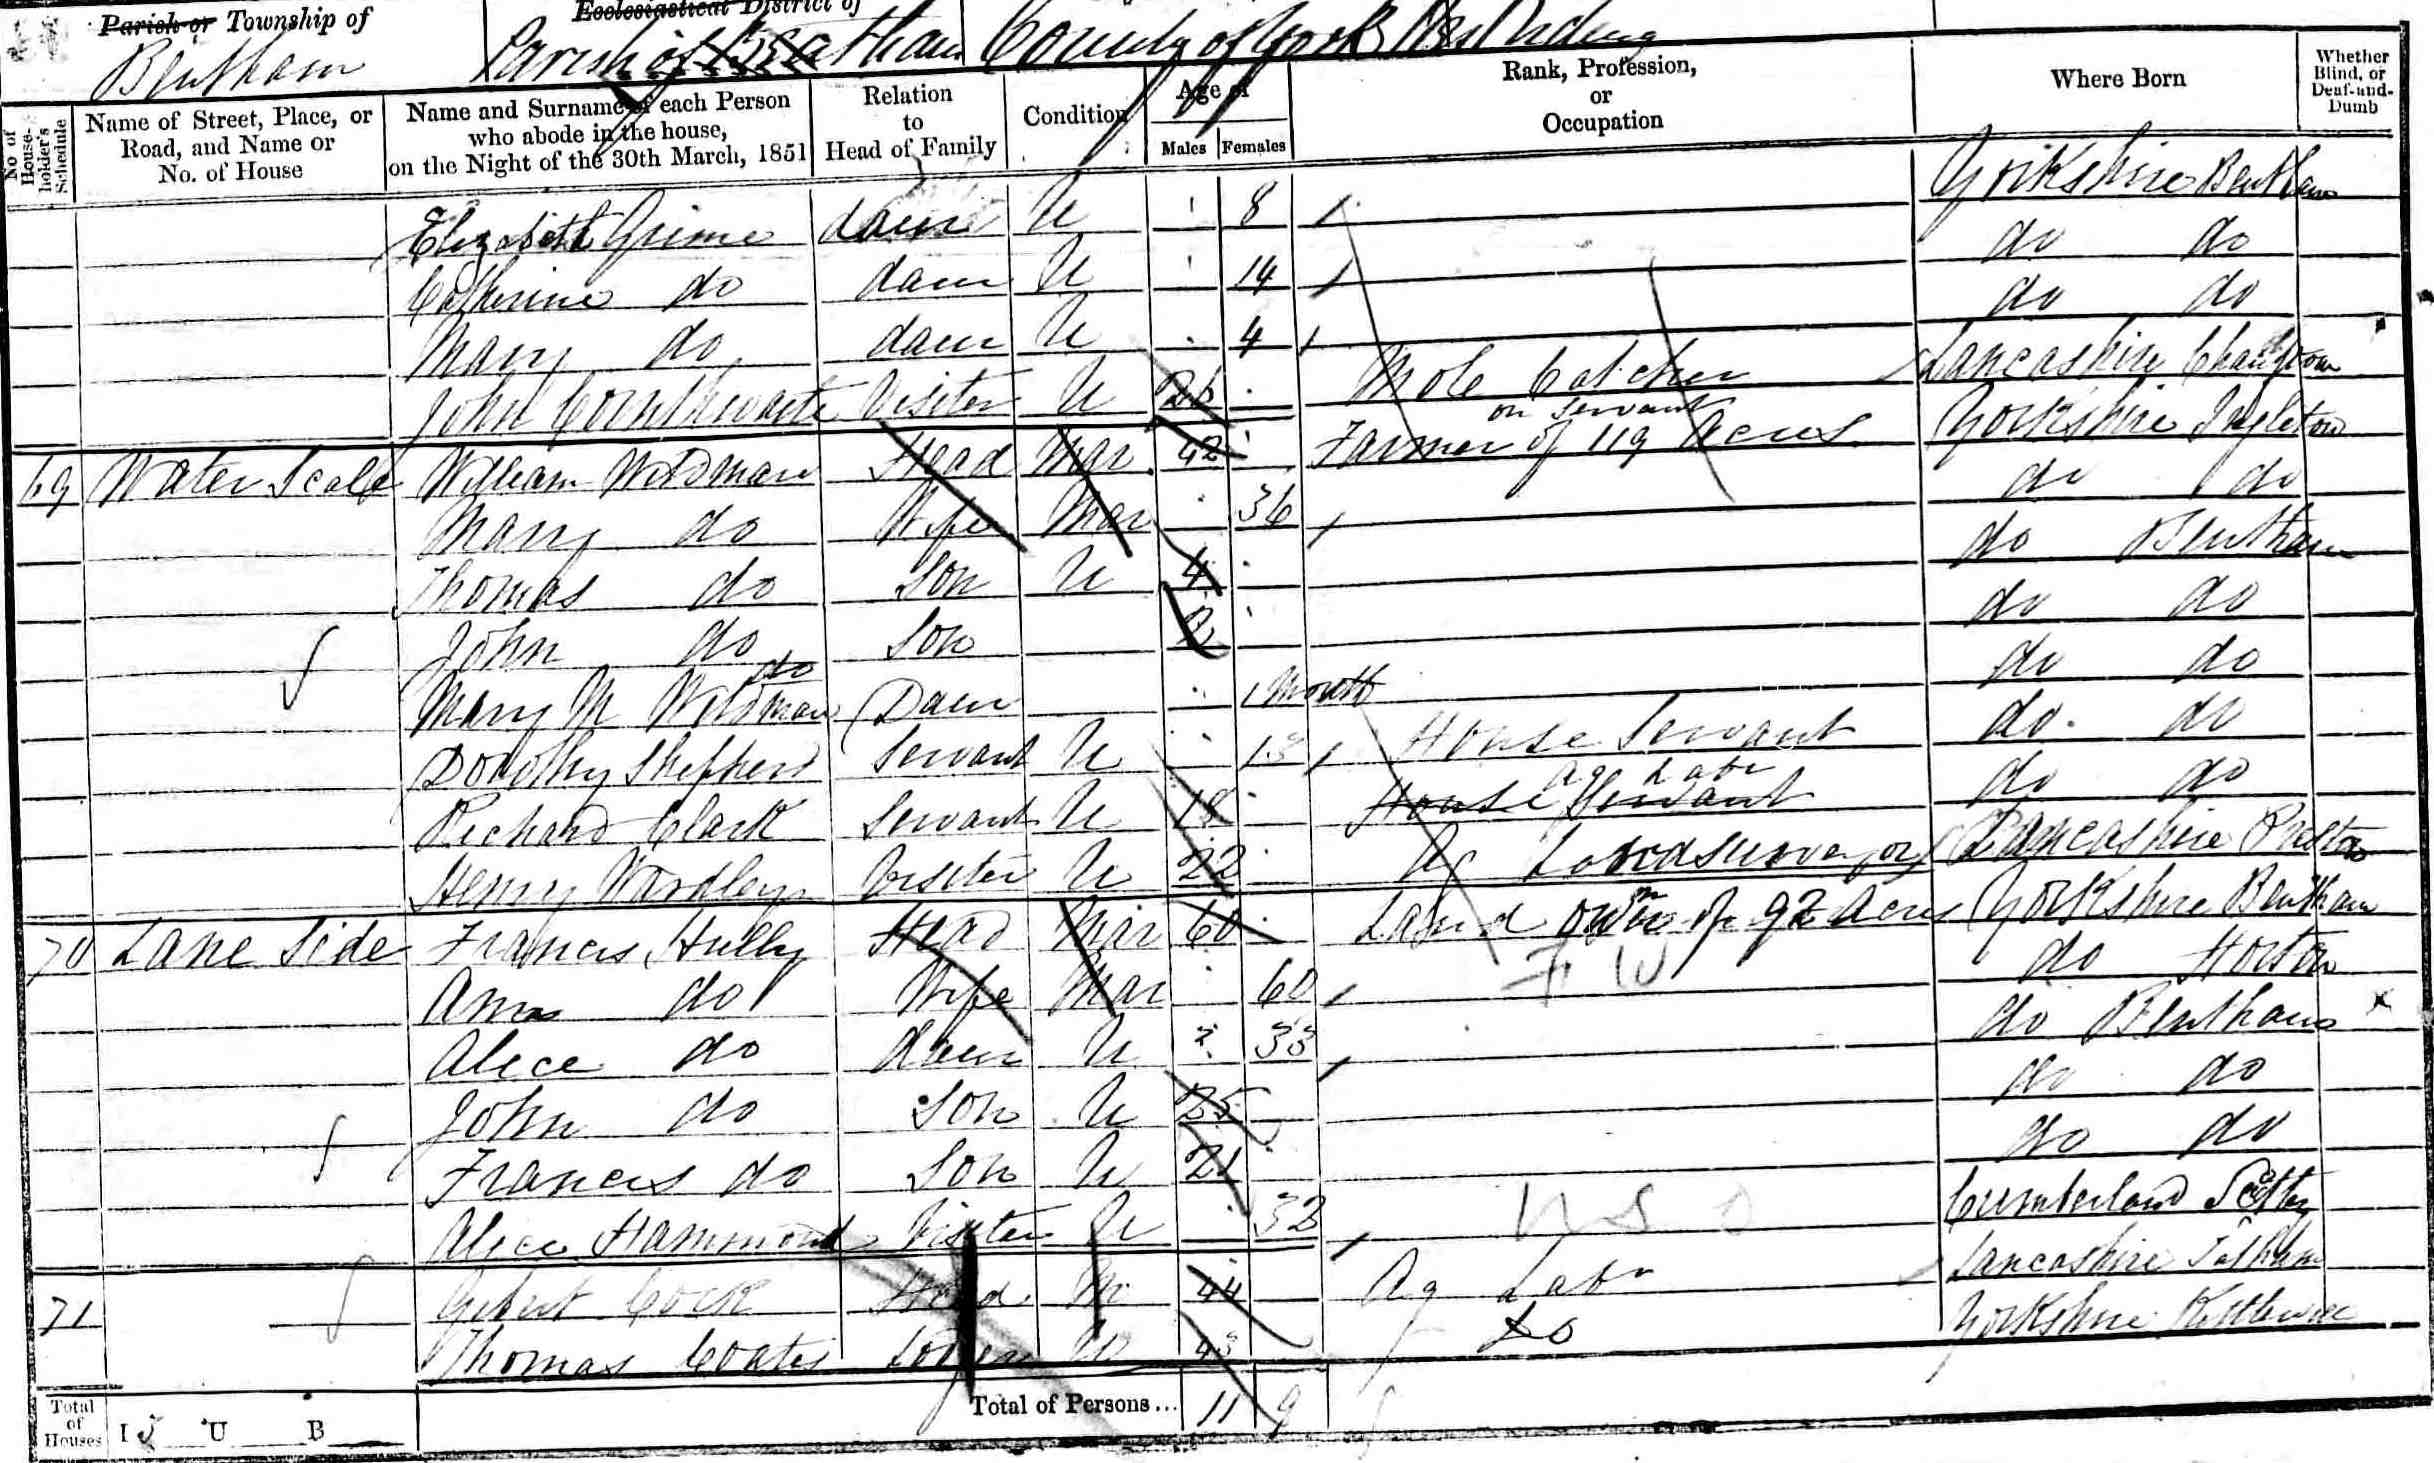 Parish or Township of
Ecclesiastical District of
Bentham
Parish of Bentham
County of York West Riding
No of House-holder's Schedule
Name of Street, Place, or Road, and Name or No. of House
Name and Surname of each Person who abode in the house, on the Night of the 30th March, 1851
Relation to Head of Family
Condition
Age of
Males
Females
Rank, Profession, or Occupation
Where Born
Whether Blind, or Deaf-and-Dumb
Elizabeth Grime daur U 8 Yorkshire Bentham
Catherine do daur U 14 do do
Mary do daur U 4 do do
John Cornthwaite Visiter U 26 Mole Catcher Lancashire
on servant
69 Water Scale William Wildman Head Mar 42 Farmer of 119 Acres Yorkshire Ingleton
Mary do Wife Mar 36 do do
Thomas do Son U 4 do Bentham
John do Son 2 do do
do
Mary M Wildman Daur 1 Month do do
Dorothy Shepherd Servant U 13 House Servant do do
Ag Labr
Richard Clark Servant U 18 House Servant do do
Henry Wardley Visiter U 22 Landsurveyor Lancashire Preston
70 Lane Side Francis Hully Head Mar 60 Land owner of 92 Acres Yorkshire Bentham
F W
Ann do Wife Mar 60 do Horton
Alice do daur U 33 do Bentham
John do Son U 25 do do
Francis do Son U 21 do do
Alice Hammond Visiter U 32 Cumberland
71 Gibert Cock Head M 44 Ag Labr Lancashire Tatham
Thomas Coates Lodger U 43 Do Yorkshire Kettlewell
Total of Houses I 3 U B
Total of Persons... 11 9